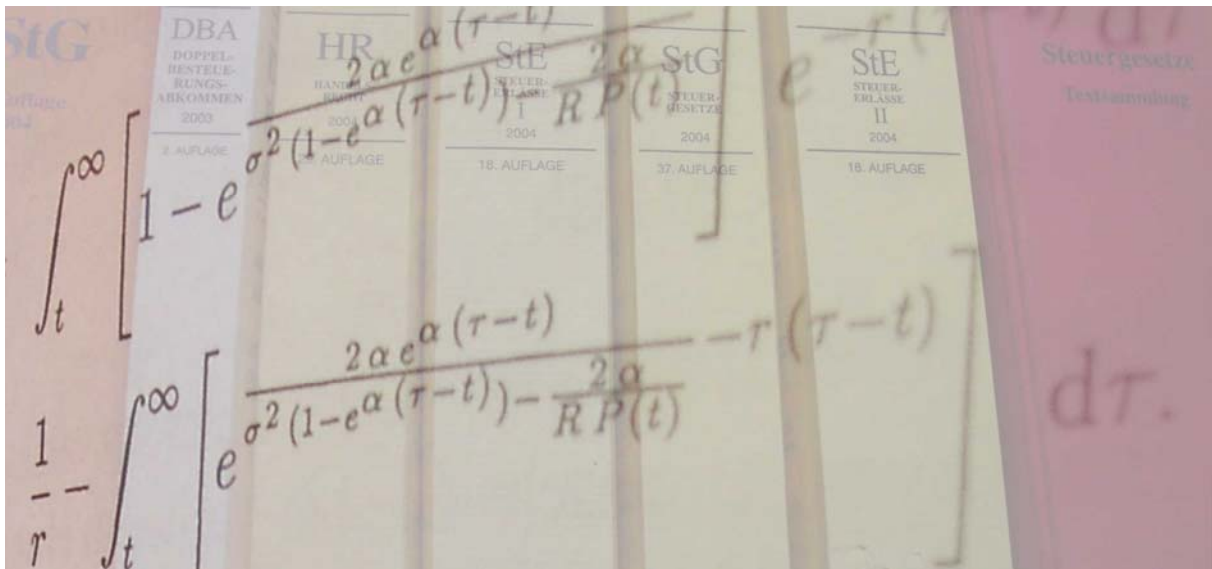 StG
DBA
DOPPEL-
BESTEUE-
RUNGS-
ABKOMMEN
2003
2. AUFLAGE
HR
HANDELS-
RECHT
2004
AUFLAGE
StE
STEUER-
ERLASSE
I
2004
18. AUFLAGE
StG
STEUER-
GESETZE
2004
37. AUFLAGE
StE
STEUER-
ERLASSE
II
2004
18. AUFLAGE
Steuergesetze
Textsammlung
∫_t^∞ [1 − e^{\frac{2 α e^{α (τ−t)}}{σ^2 (1−e^{α (τ−t)}) − \frac{2 α}{R P(t)}}}] e^{−r (τ−t)} dτ
\frac{1}{r} − ∫_t^∞ [e^{\frac{2 α e^{α (τ−t)}}{σ^2 (1−e^{α (τ−t)}) − \frac{2 α}{R P(t)}} − r (τ−t)}] dτ.